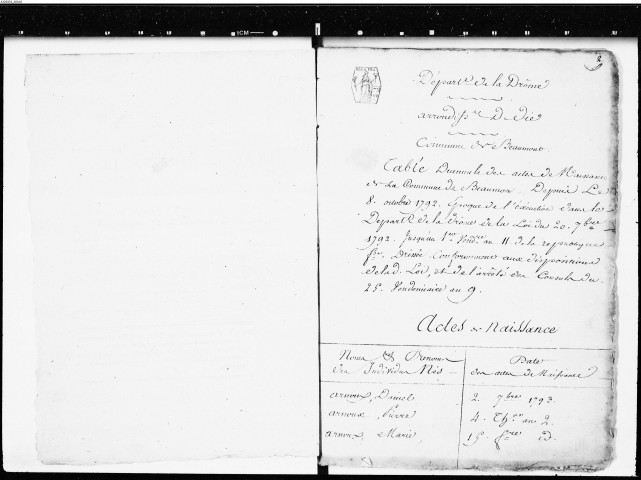 Départ.t de la Drôme
arrondiss.t De die
Commune de Beaumont
Table Decennale des actes de Naissance
de La Commune de Beaumon. Depuis Le
8. octobre 1792. Epoque de l'éxécution dans le
Depart.t de la drôme de la Loi du 20. 7bre
1792. Jusqu'au 1er Vend.re an 11 de la republique
f.se Dréssée Conformement aux dispositions
de lad. Loi, et de l'arrêté des Consuls du
25. Vendemiaire an 9.
Actes de Naissance
Noms & Prenoms Date
des Individus Nés des actes de Naissance
arnoux, Daniel 2. 7bre 1793.
arnoux, Pierre 4. Th.or an 2.
arnoux, Marie 15. id.
ICM